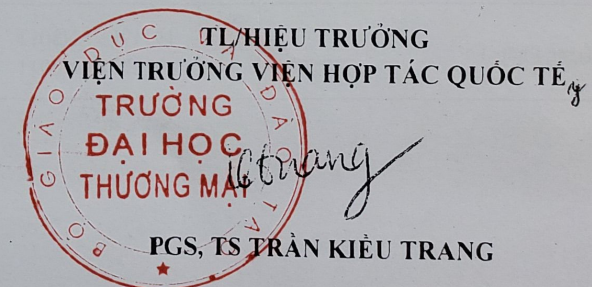 TL/HIỆU TRƯỞNG
VIỆN TRƯỞNG VIỆN HỢP TÁC QUỐC TẾ
BỘ GIÁO DỤC VÀ ĐÀO TẠO
TRƯỜNG
ĐẠI HỌC
THƯƠNG MẠI
PGS, TS TRẦN KIỀU TRANG